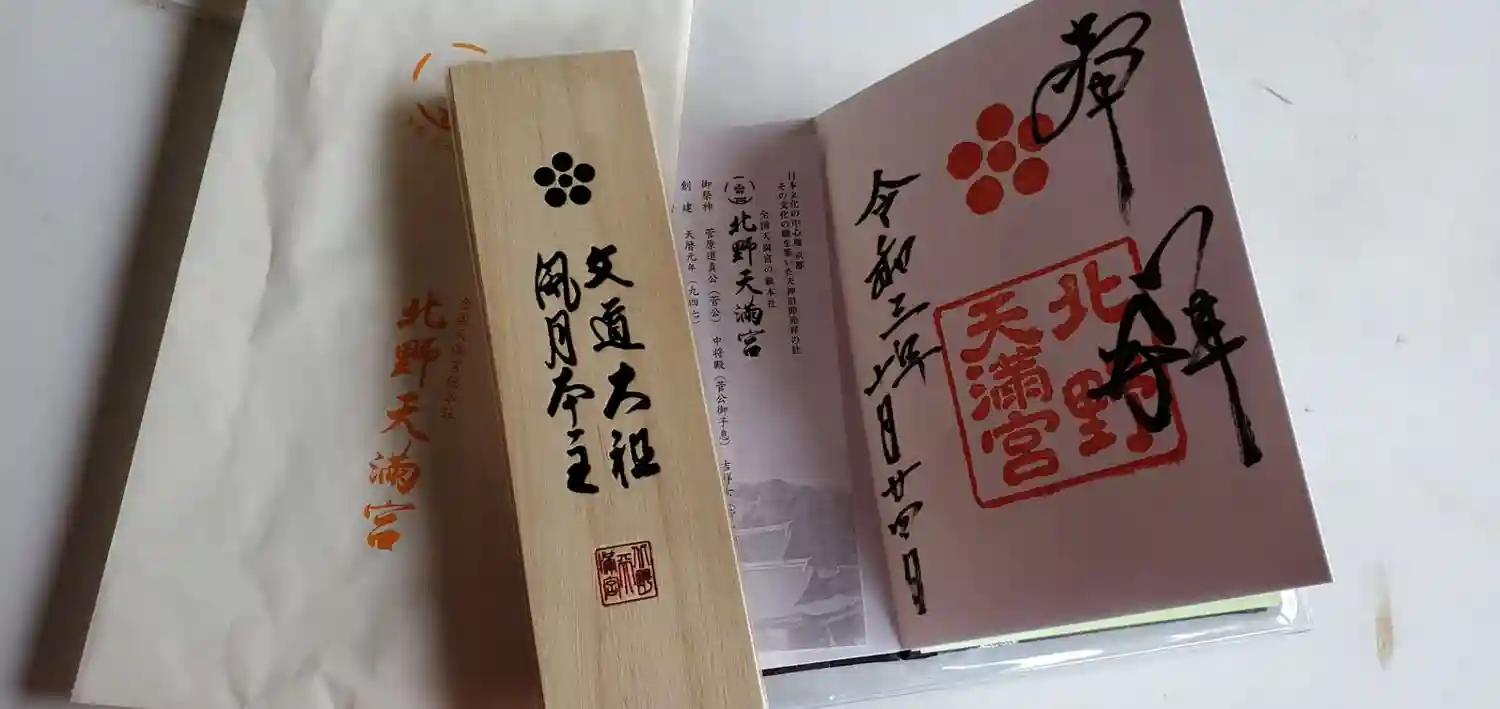 全国天満宮総本社
北野天満宮
文道大祖
風月本主
北野天満宮
日本文化の中心地 京都
その文化の礎を築いた天神信仰発祥の社
全国天満宮の総本社
北野天満宮
御祭神 菅原道真公（菅公） 中将殿（菅公御子息） 吉祥女
創建 天暦元年（九四七）
奉拝
北野
天満宮
令和三年七月廿四日